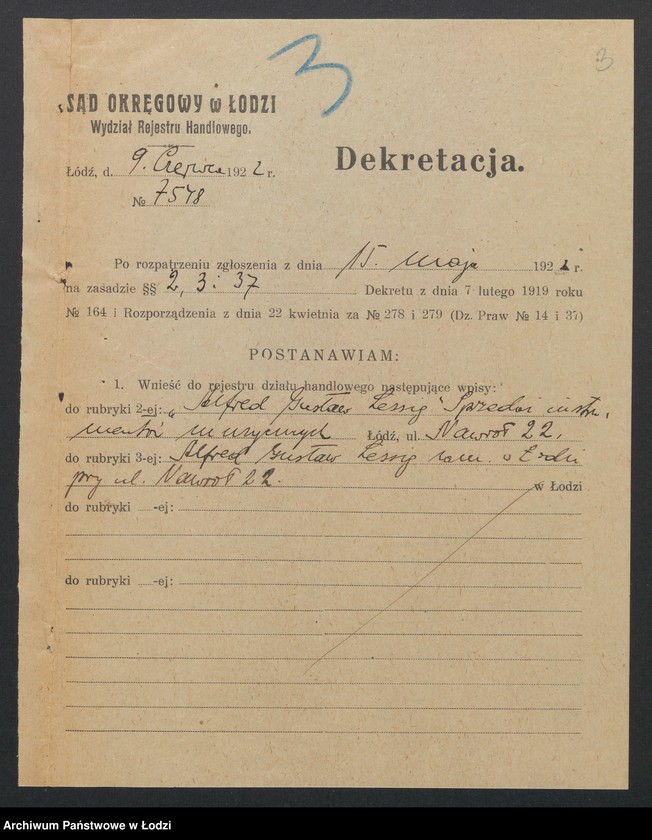 3
3
SĄD OKRĘGOWY w ŁODZI
Wydział Rejestru Handlowego.
Dekretacja.
Łódź, d. 9. Czerwca 1922 r.
№ 7548
Po rozpatrzeniu zgłoszenia z dnia 15. maja 1922 r.
na zasadzie §§ 2, 3 i 37 Dekretu z dnia 7 lutego 1919 roku
№ 164 i Rozporządzenia z dnia 22 kwietnia za № 278 i 279 (Dz. Praw № 14 i 37)
POSTANAWIAM:
1. Wnieść do rejestru działu handlowego następujące wpisy:
do rubryki 2-ej: „Alfred Gustaw Lessig" Sprzedaż instru-
mentów muzycznych Łódź, ul. Nawrot 22.
do rubryki 3-ej: Alfred Gustaw Lessig zam. w Łodzi
przy ul. Nawrot 22. w Łodzi
do rubryki -ej:
do rubryki -ej:
Archiwum Państwowe w Łodzi